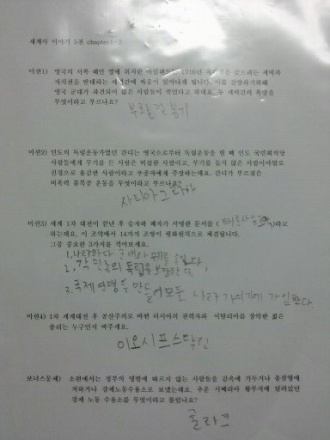 세계사 이야기 5권 chapter1-3
미션1) 영국의 서쪽 해안 옆에 위치한
영국 군대가 파견되어 많은 사람들이 죽었다고 하네요. 두 세력간의 폭동을
무엇이라고 부르나요?
부활절 봉기
미션2) 인도의 독립운동가였던 간디는 영국으로부터 독립운동을 할 때 인도 국민회의당
사람들에게 무기를 든 사람은 비겁한 사람이고, 무기를 들지 않은 사람이야말로
진정으로 용감한 사람이라고 추종자에게 주장하는데요. 간디가 부르짖은
비폭력 불복종 운동을 무엇이라고 부르나요?
사티아그라하
미션3) 세계 1차 대전이 끝난 후 승자와 패자가 서명한 문서를 ( )라고
하는데요. 이 조약에서 14가지 조항이 평화원칙으로 제결됩니다.
그중 중요한 3가지를 적어보세요.
1. 나라마다
2. 각 민족의 독립을
3. 국제연맹을 만들어 모든 나라가 여기에 가입한다
미션4) 1차 세계대전 후 공산주의로 바뀐 러시아의 권력자와 이탈리아를 장악한 젊은
누구인지 써주세요.
이오시프스탈린
보너스문제) 소련에서는 정부의 명령에 따르지 않는 사람들을 감옥에 가두거나 총살형에
처하거나 강제노동수용소로 보냈는데요. 추운 시베리아 황무지에 널려있던
강제 노동 수용소를 무엇이라고 불렀나요?
굴라크